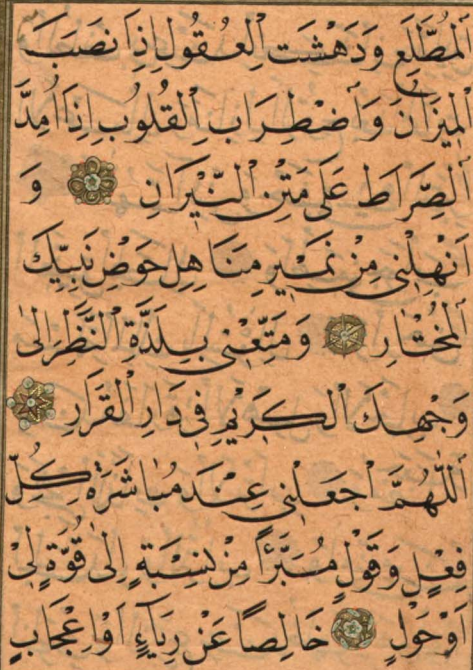 الْمُطَّلَعِ وَدَهْشَتِ الْعُقُولِ إِذَا نَصَبَ
الْمِيزَانَ وَاضْطِرَابِ الْقُلُوبِ إِذَا مُدَّ
الصِّرَاطَ عَلَى مَتْنِ النِّيرَانِ وَ
اَنْهِلْنِي مِنْ نَمِيرِ مَنَاهِلِ حَوْضِ نَبِيِّكَ
الْمُخْتَارِ وَمَتِّعْنِي بِلَذَّةِ النَّظَرِ إِلَى
وَجْهِكَ الْكَرِيمِ فِي دَارِ الْقَرَارِ
اَللّٰهُمَّ اجْعَلْنِي عِنْدَ مُبَاشَرَةِ كُلِّ
فِعْلٍ وَقَوْلٍ مُبَرَّأً مِنْ نِسْبَةٍ إِلَى قُوَّةٍ لِي
اَوْحَوْلٍ خَالِصاً عَنْ رِيَاءٍ اَوْ اِعْجَابٍ